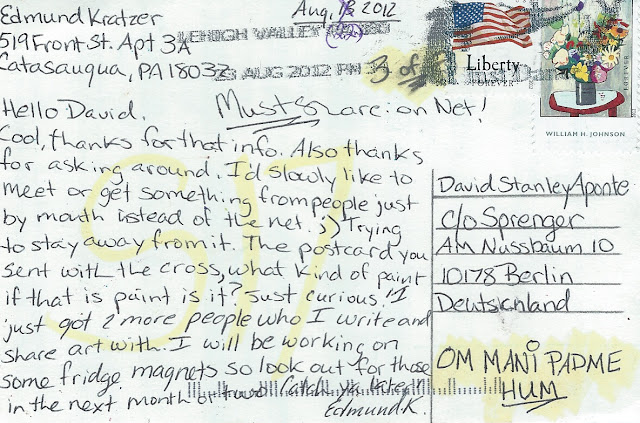 Edmund Kratzer
519 Front St. Apt 3A
Catasauqua, PA 18032
Aug, 18 2012
LEHIGH VALLEY
AUG 2012 PM
3 of
Liberty
FOREVER
WILLIAM H. JOHNSON
Hello David, Must share: on Net!
Cool, thanks for that info. Also thanks
for asking around. I'd slowly like to
meet or get something from people just
by mouth instead of the net. ;) Trying
to stay away from it. The postcard you
sent with the cross, what kind of paint
if that is paint is it? Just curious! I
just got 2 more people who I write and
share art with. I will be working on
some fridge magnets so look out for those
in the next month or two. Catch ya latern
Edmund K.
David Stanley Aponte
c/o Sprenger
AM Nussbaum 10
10178 Berlin
Deutschland
OM MANI PADME
HUM
57